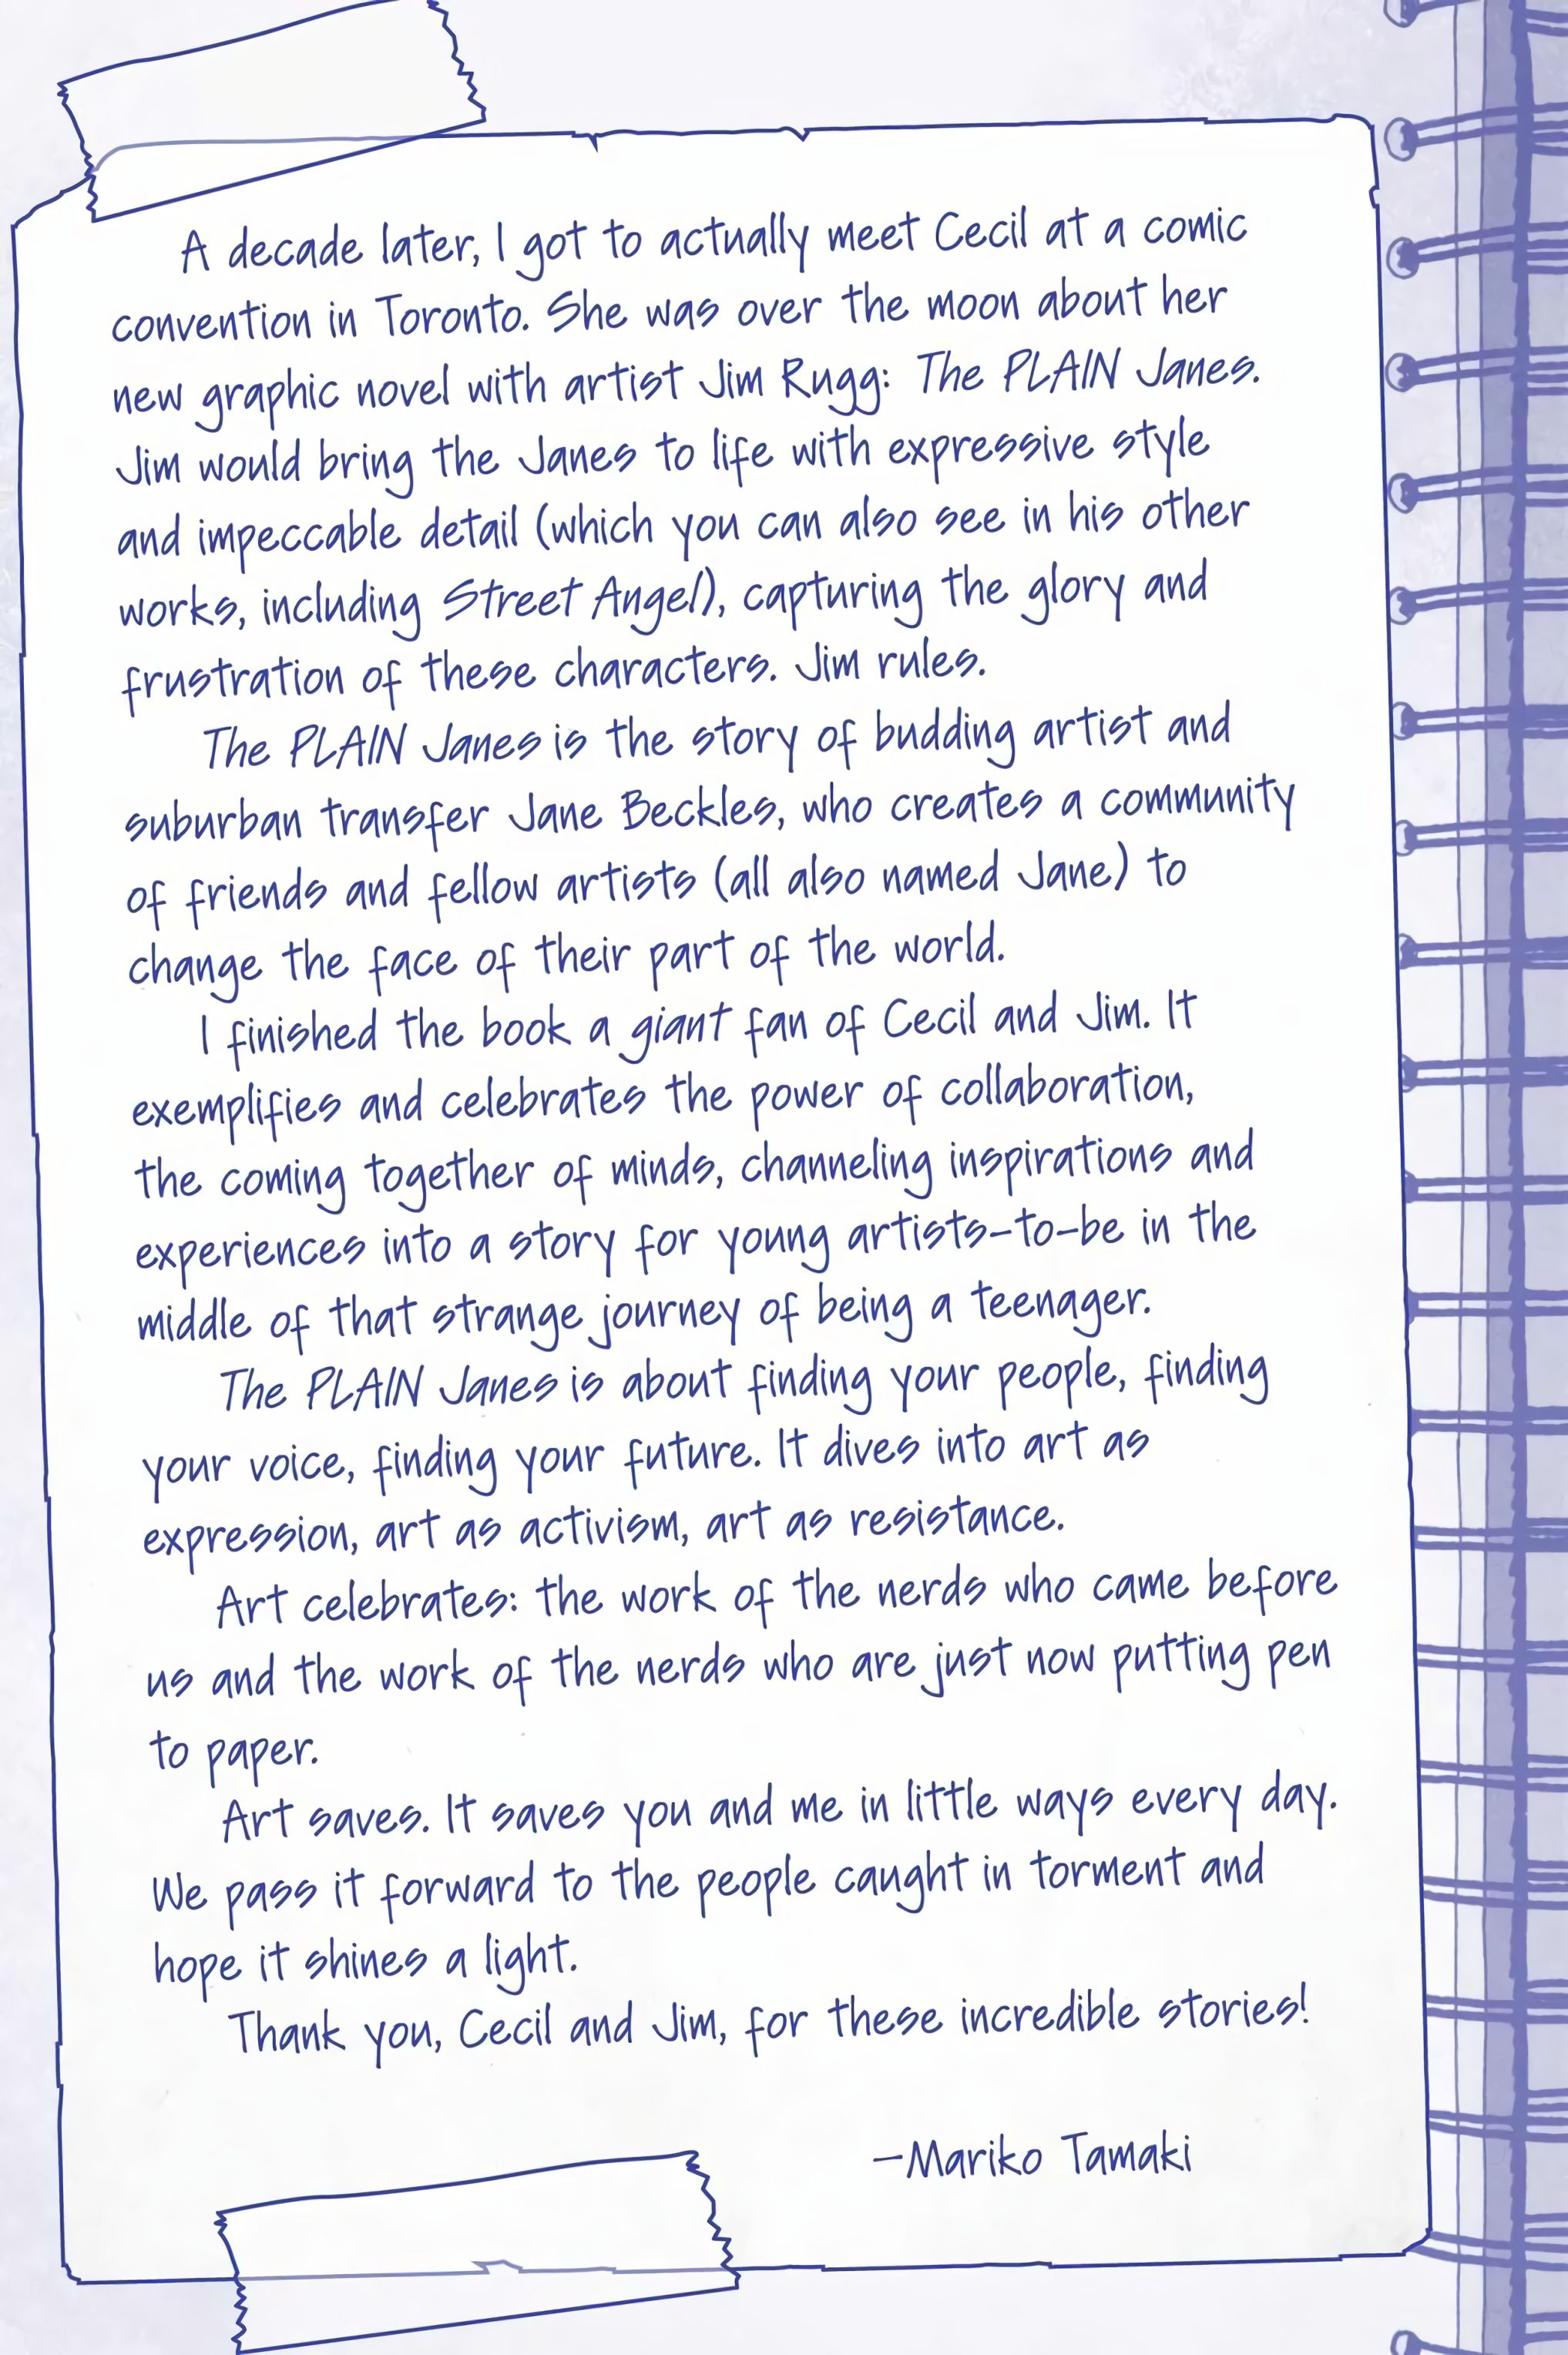 A decade later, I got to actually meet Cecil at a comic
convention in Toronto. She was over the moon about her
new graphic novel with artist Jim Rugg: The PLAIN Janes.
Jim would bring the Janes to life with expressive style
and impeccable detail (which you can also see in his other
works, including Street Angel), capturing the glory and
frustration of these characters. Jim rules.
The PLAIN Janes is the story of budding artist and
suburban transfer Jane Beckles, who creates a community
of friends and fellow artists (all also named Jane) to
change the face of their part of the world.
I finished the book a giant fan of Cecil and Jim. It
exemplifies and celebrates the power of collaboration,
the coming together of minds, channeling inspirations and
experiences into a story for young artists-to-be in the
middle of that strange journey of being a teenager.
The PLAIN Janes is about finding your people, finding
your voice, finding your future. It dives into art as
expression, art as activism, art as resistance.
Art celebrates: the work of the nerds who came before
us and the work of the nerds who are just now putting pen
to paper.
Art saves. It saves you and me in little ways every day.
We pass it forward to the people caught in torment and
hope it shines a light.
Thank you, Cecil and Jim, for these incredible stories!
—Mariko Tamaki